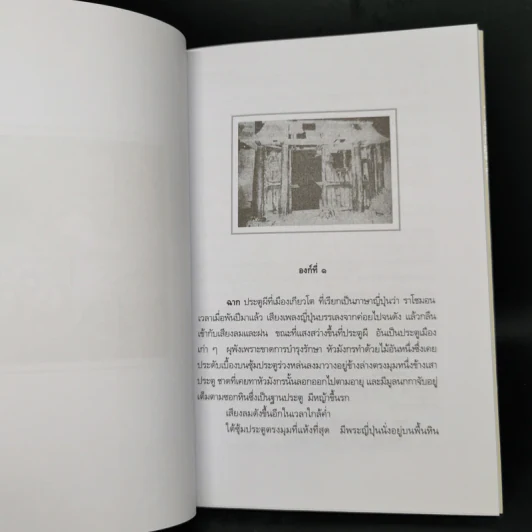 องก์ที่ ๑
ฉาก ประตูผีที่เมืองเกียวโต ที่เรียกเป็นภาษาญี่ปุ่นว่า ราโชมอน
เวลาเมื่อพันปีมาแล้ว เสียงเพลงญี่ปุ่นบรรเลงจากค่อยไปจนดัง แล้วกลืน
เข้ากับเสียงลมและฝน ขณะที่แสงสว่างขึ้นที่ประตูผี อันเป็นประตูเมือง
เก่า ๆ ผุพังเพราะขาดการบำรุงรักษา หัวมังกรทำด้วยไม้อันหนึ่งซึ่งเคย
ประดับเบื้องบนซุ้มประตูร่วงหล่นลงมาวางอยู่ข้างล่างตรงมุมหนึ่งข้างเสา
ประตู ชาดที่เคยทาหัวมังกรนั้นลอกออกไปตามอายุ และมีมูลนกกาจับอยู่
เต็มตามซอกหินซึ่งเป็นฐานประตู มีหญ้าขึ้นรก
เสียงลมดังขึ้นอีกในเวลาใกล้ค่ำ
ใต้ซุ้มประตูตรงมุมที่แห้งที่สุด มีพระญี่ปุ่นนั่งอยู่บนพื้นหิน